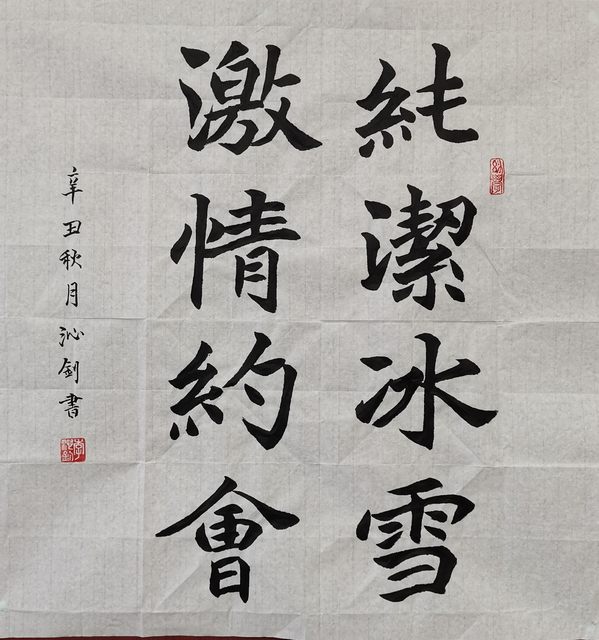 純潔冰雪
激情約會
辛丑秋月沁劍書